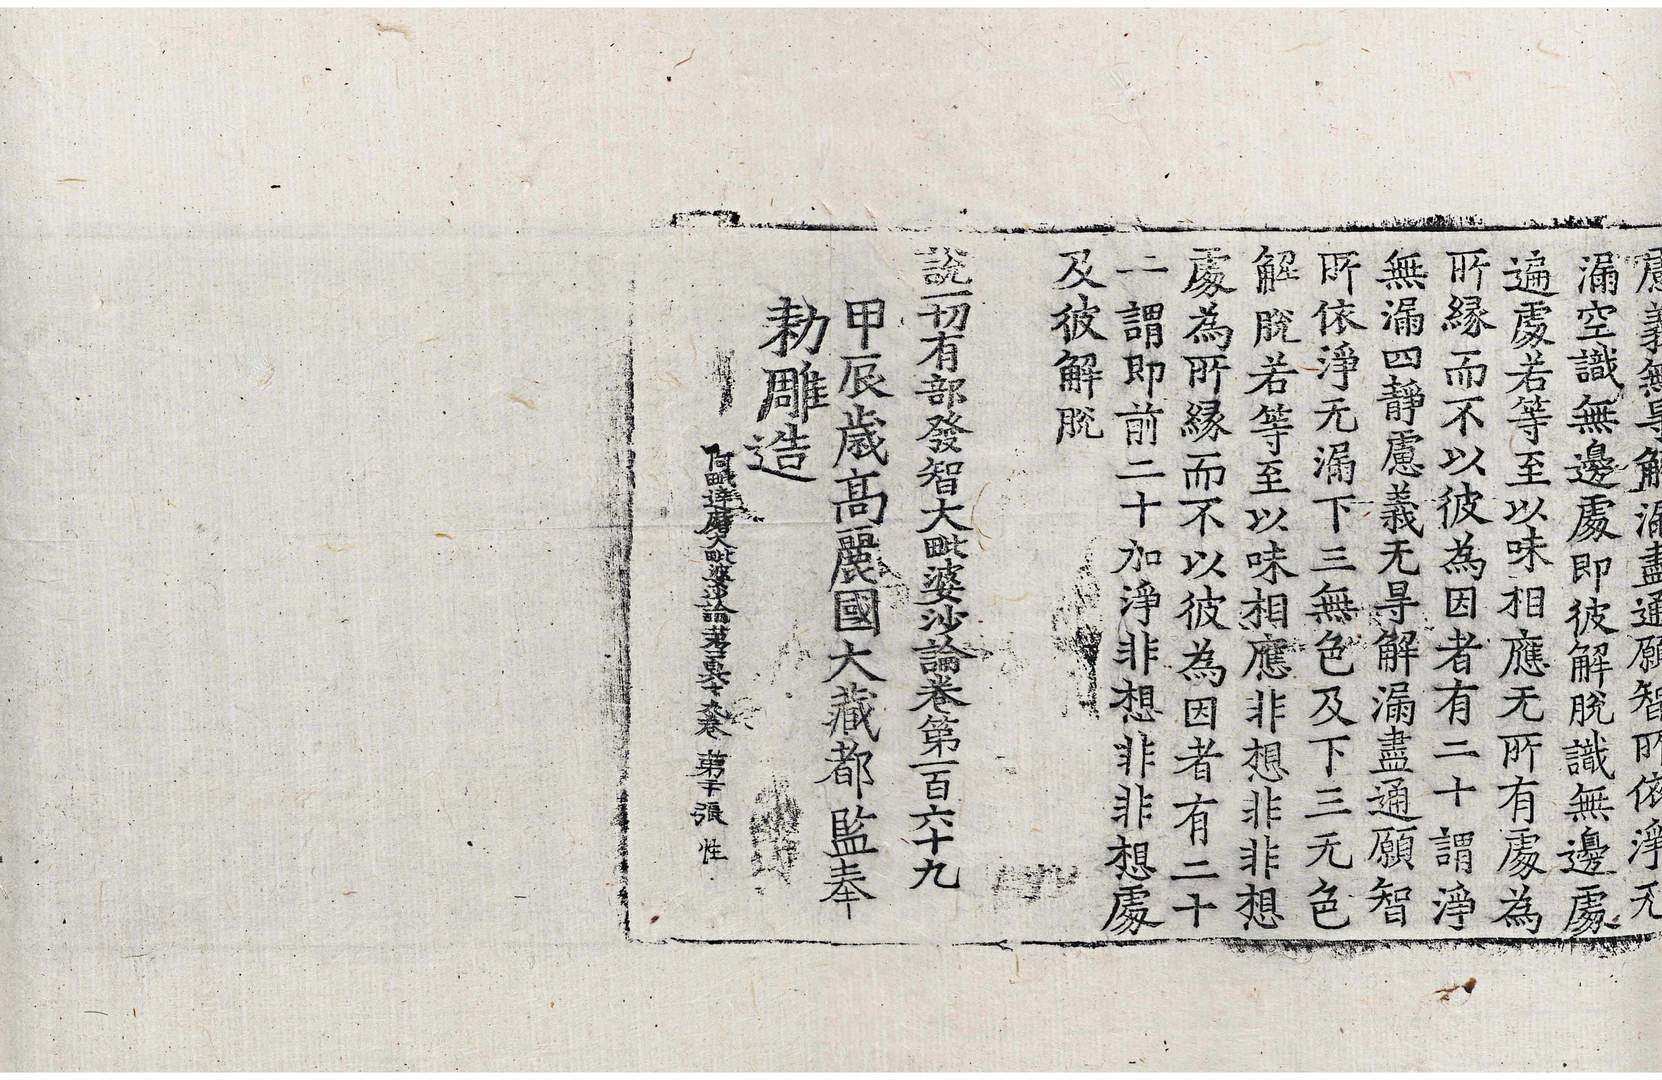 慮義無㝵解漏盡通願智所依淨无
漏空識無邊處即彼解脫識無邊處
遍處若等至以味相應无所有處為
所緣而不以彼為因者有二十謂淨
無漏四靜慮義无㝵解漏盡通願智
所依淨无漏下三無色及下三无色
解脫若等至以味相應非想非非想
處為所緣而不以彼為因者有二十
二謂即前二十加淨非想非非想處
及彼解脫
說一切有部發智大毗婆沙論卷第一百六十九
甲辰歲高麗國大藏都監奉
勑雕造
阿毗達磨大毗婆沙論第一百六十九卷 第 張 性